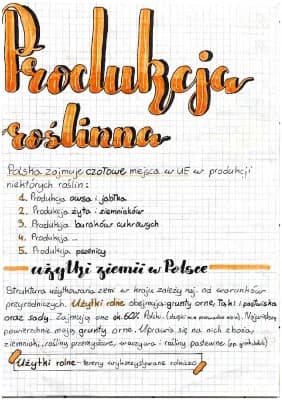 Produkcja
roślinna
Polska zajmuje czołowe miejsca w UE w produkcji
niektórych roślin:
1. Produkcja owsa i jabłka
2. Produkcja żyta i ziemniaków
3. Produkcja buraków cukrowych
4. Produkcja ...
5. Produkcja pszenicy
użytki ziemii w Polsce
Struktura użytkowana zemi w kraju zależy naj. od warunków
przyrodniczych. Użytki rolne obejmują grunty orne, łąki i pastwiska
oraz sady. Zajmują one ok. 60% Polski. Największą
powierzchnie mają grunty orne. Uprawia się na nich zboża,
ziemniaki, rośliny przemysłowe, warzywa i rośliny pastewne
Użytki rolne - tereny wykorzystywane rolniczo